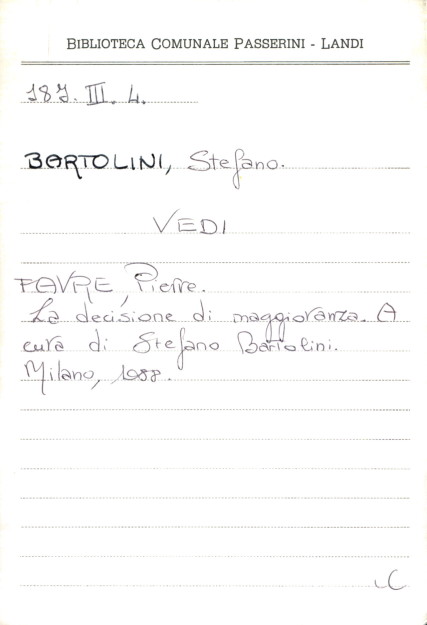 BIBLIOTECA COMUNALE PASSERINI - LANDI
187. III. 4.
BARTOLINI, Stefano.
VEDI
FAVRE, Pierre.
La decisione di maggioranza. A
cura di Stefano Bartolini.
Milano, 1988.